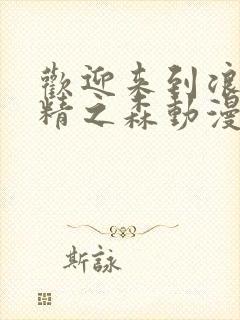 歡迎来到浪
精之森動漫
斯詠